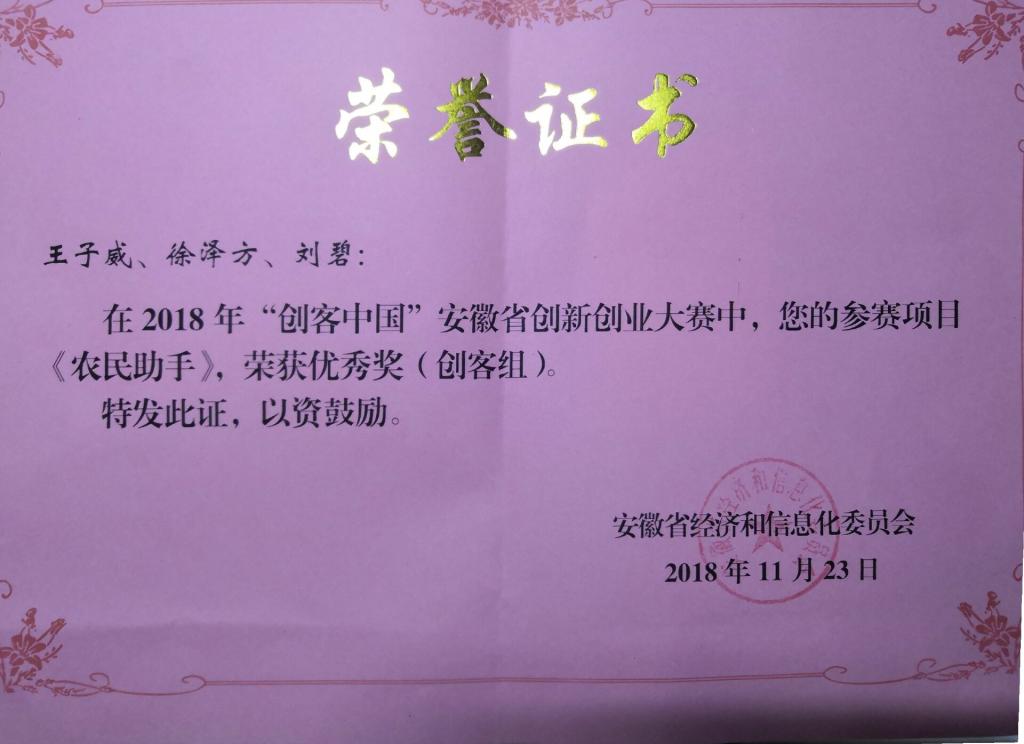 荣誉证书
王子威、徐泽方、刘碧：
在2018年“创客中国”安徽省创新创业大赛中，您的参赛项目
《农民助手》，荣获优秀奖（创客组）。
特发此证，以资鼓励。
安徽省经济和信息化委员会
2018年11月23日